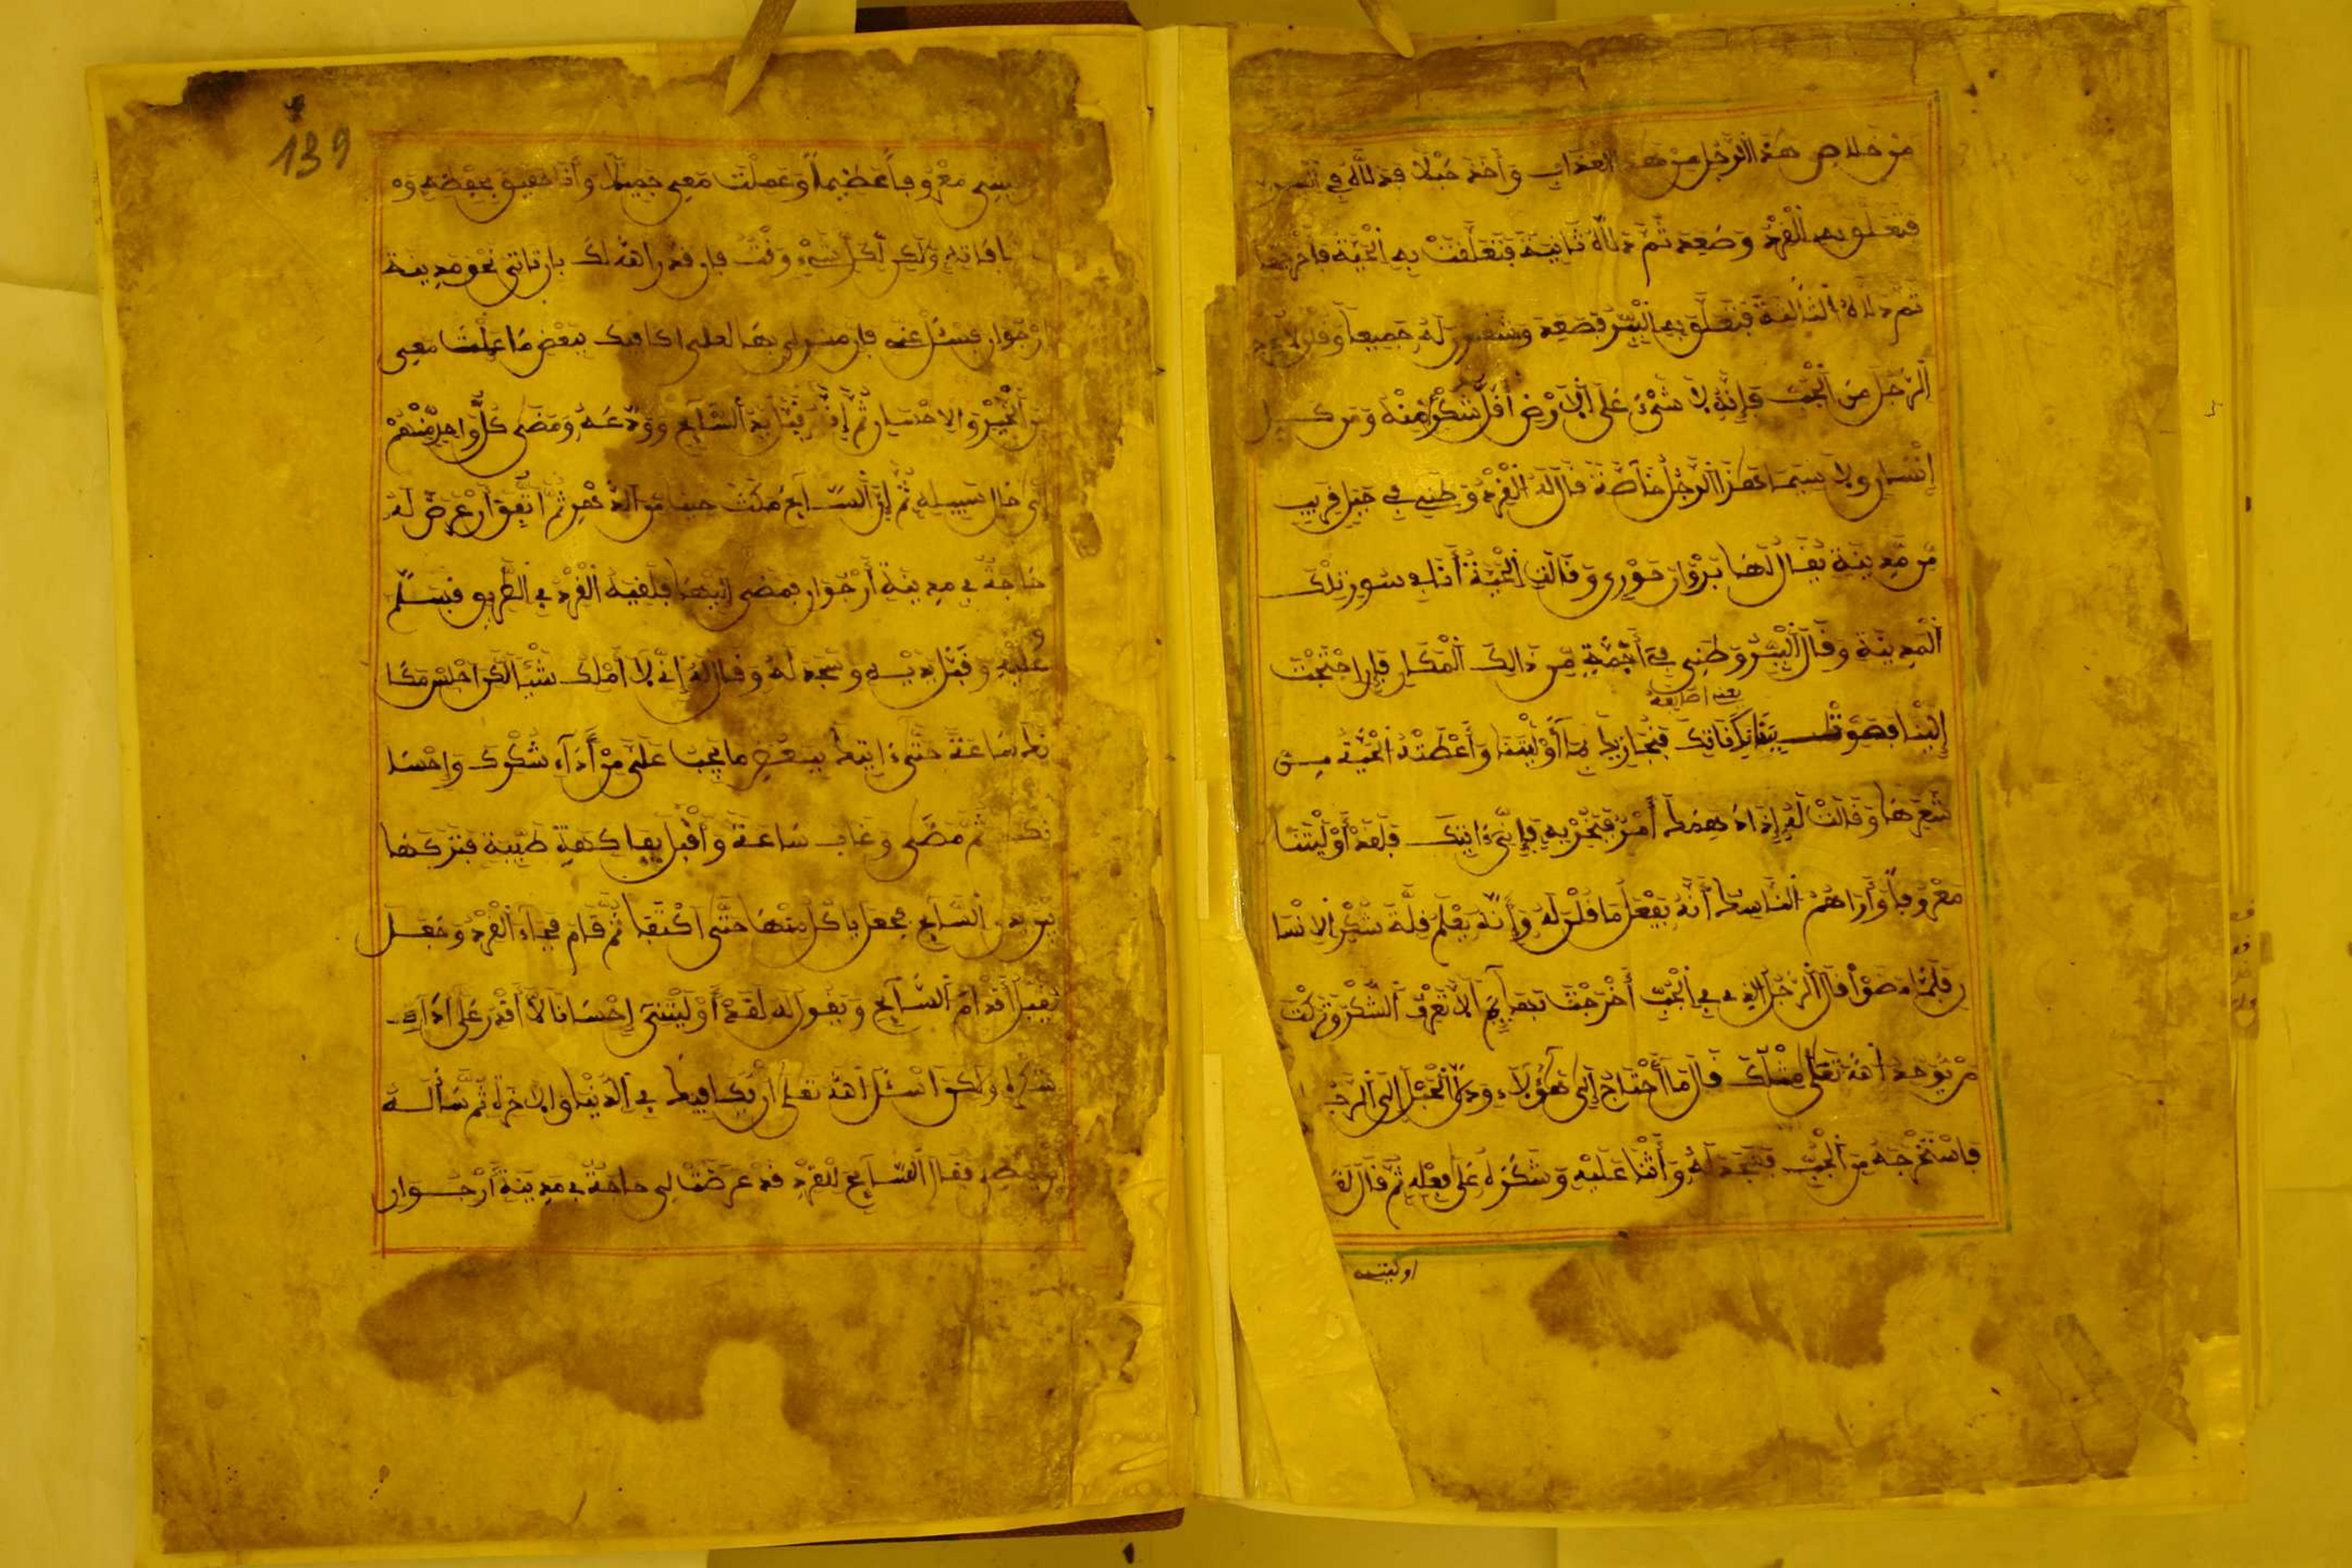 من خلاص هذا الرجل من هذا العذاب وأخذ حبلا فدلاه في البير
فتعلق به القرد وصعد ثم دلاه ثانية فتعلقت به الحية فأخرجها
ثم دلاه الثالثة فتعلق به الببر فصعد وشكرن له جميعا وقلن لا تخرج
الرجل من الجب فإنه لا شيء على الأرض أقل شكرا منه ومن كل
إنسان ولا سيما هذا الرجل خاصة قال له القرد وطني في جبل قريب
من مدينة يقال لها وقالت الحية أنا في سور تلك
المدينة وقال الببر وطني في أجمة من ذالك المكان فإن احتجت
إلينا فصوت فنجازيك بما أوليتنا وأعطته الحية من
شعرها وقالت له إذا دهمك أمر فبخر به فإني ءاتيك فلقد أوليتنا
معروفا وأراهم الناسك أنه يفعل ما قلن له وأنه يعلم قلة شكر الانسا
ن فلما مضوا قال الرجل الذي في الجب أخرجت بهايم لا تعرف الشكر وتركت
من يوحد الله تعلى مثلك قال ما أحتاج إلى هؤلاء ودلى الحبل إلى الرجل
فاستخرجه من الجب فسجد له وأثنا عليه وشكره على فعله ثم قال لقد
اوليتني
معروفا عظيما وعملت معي جميلا وأنا حقيق بحفظه و
مكافاته ولكن لكل شيء وقت فإن قدر الله لك بان تاتي نحو مدينة
ارجوان فسئل عني فان منزلي بها لعلي اكافيك ببعض ما عملت معي
من الخير والاحسان ثم إنه قبل يد السايح وودعه ومضى كل واحد منهم
إلى حال سبيله ثم إن السايح مكث حينا من الدهر ثم اتفق أن عرض له
حاجة في مدينة أرجوان فمضى إليها فلقيه القرد في الطريق فسلم
عليه وقبل يديه وسجد له وقال له إني لا أملك شيئا لكن اجلس مكا
نك ساعة حتى ءاتيك ببعض ما يجب علي من أداء شكرك وإحسا
نك ثم مضى وغاب ساعة وأقبل بفاكهة طيبة فتركها
بين يدي السايح فجعل ياكل منها حتى اكتفا ثم قام فجاء القرد وجعل
يقبل أقدام السايح ويقول له لقد أوليتني إحسانا لا أقدر على أداء
شكره ولكن اسئل الله تعلى أن يكافيك في الدنيا والاخرة ثم سأله
فقال السايح للقرد قد عرضت لي حاجة في مدينة أرجوان
139